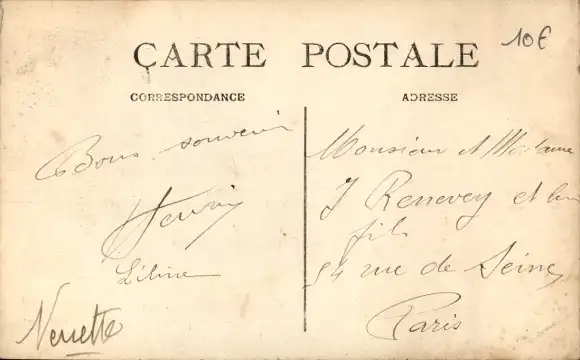 10€
CARTE POSTALE
CORRESPONDANCE
ADRESSE
Bons souvenir
Henri
Monsieur et Madame
J Rennevey et leur
fils
54 rue de Seine
Paris